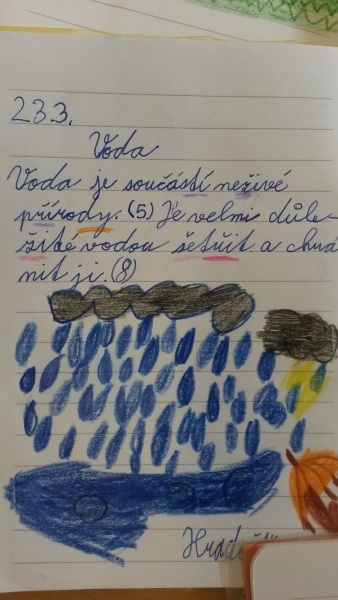 23.3.
Voda
Voda je součástí neživé
přírody. (5) Je velmi důle-
žité vodou šetřit a chrá
nit ji. (8)